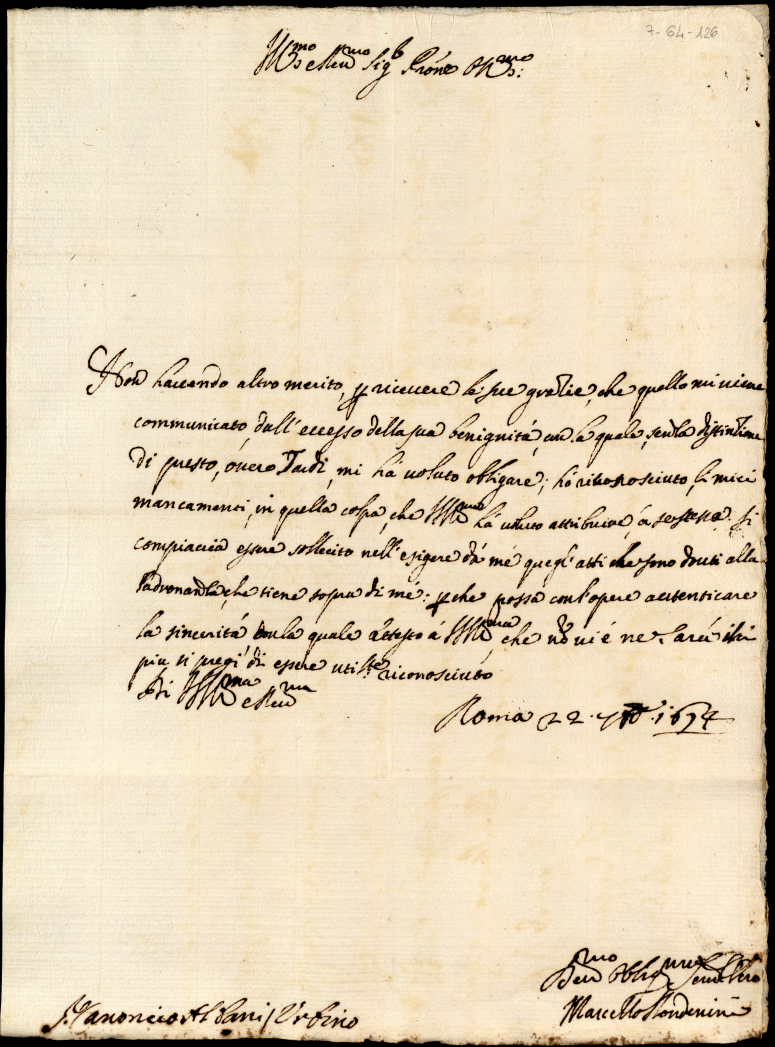 7-64-126
Ill.mo e Reu.mo Sig.r Prōne
Non hauendo altro merito, p riceuere le sue gratie, che quello mi uiene
communicato, dall'eccesso della sua benignità, con la quale, senza distintione
di presto, ò uero Tardi, mi hà uoluto obligare; hò riconosciuto, li miei
mancamenti, in quella colpa, che hà uoluto attribuire, à se stessa. Si
compiaccia essere sollecito nell'esigere dà mè quegl'atti che sono douti alla
Padronanza, che tiene sopra di mè: p che possa con l'opere autenticare
la sincerità con la quale attesto à che ui è ne sarà chi
più si pregi di essere riconosciuto
Di e Reu.ma
Roma 22 1674
Seru.re
Marcello Rondinini
S. Canonico Albani / Urbino